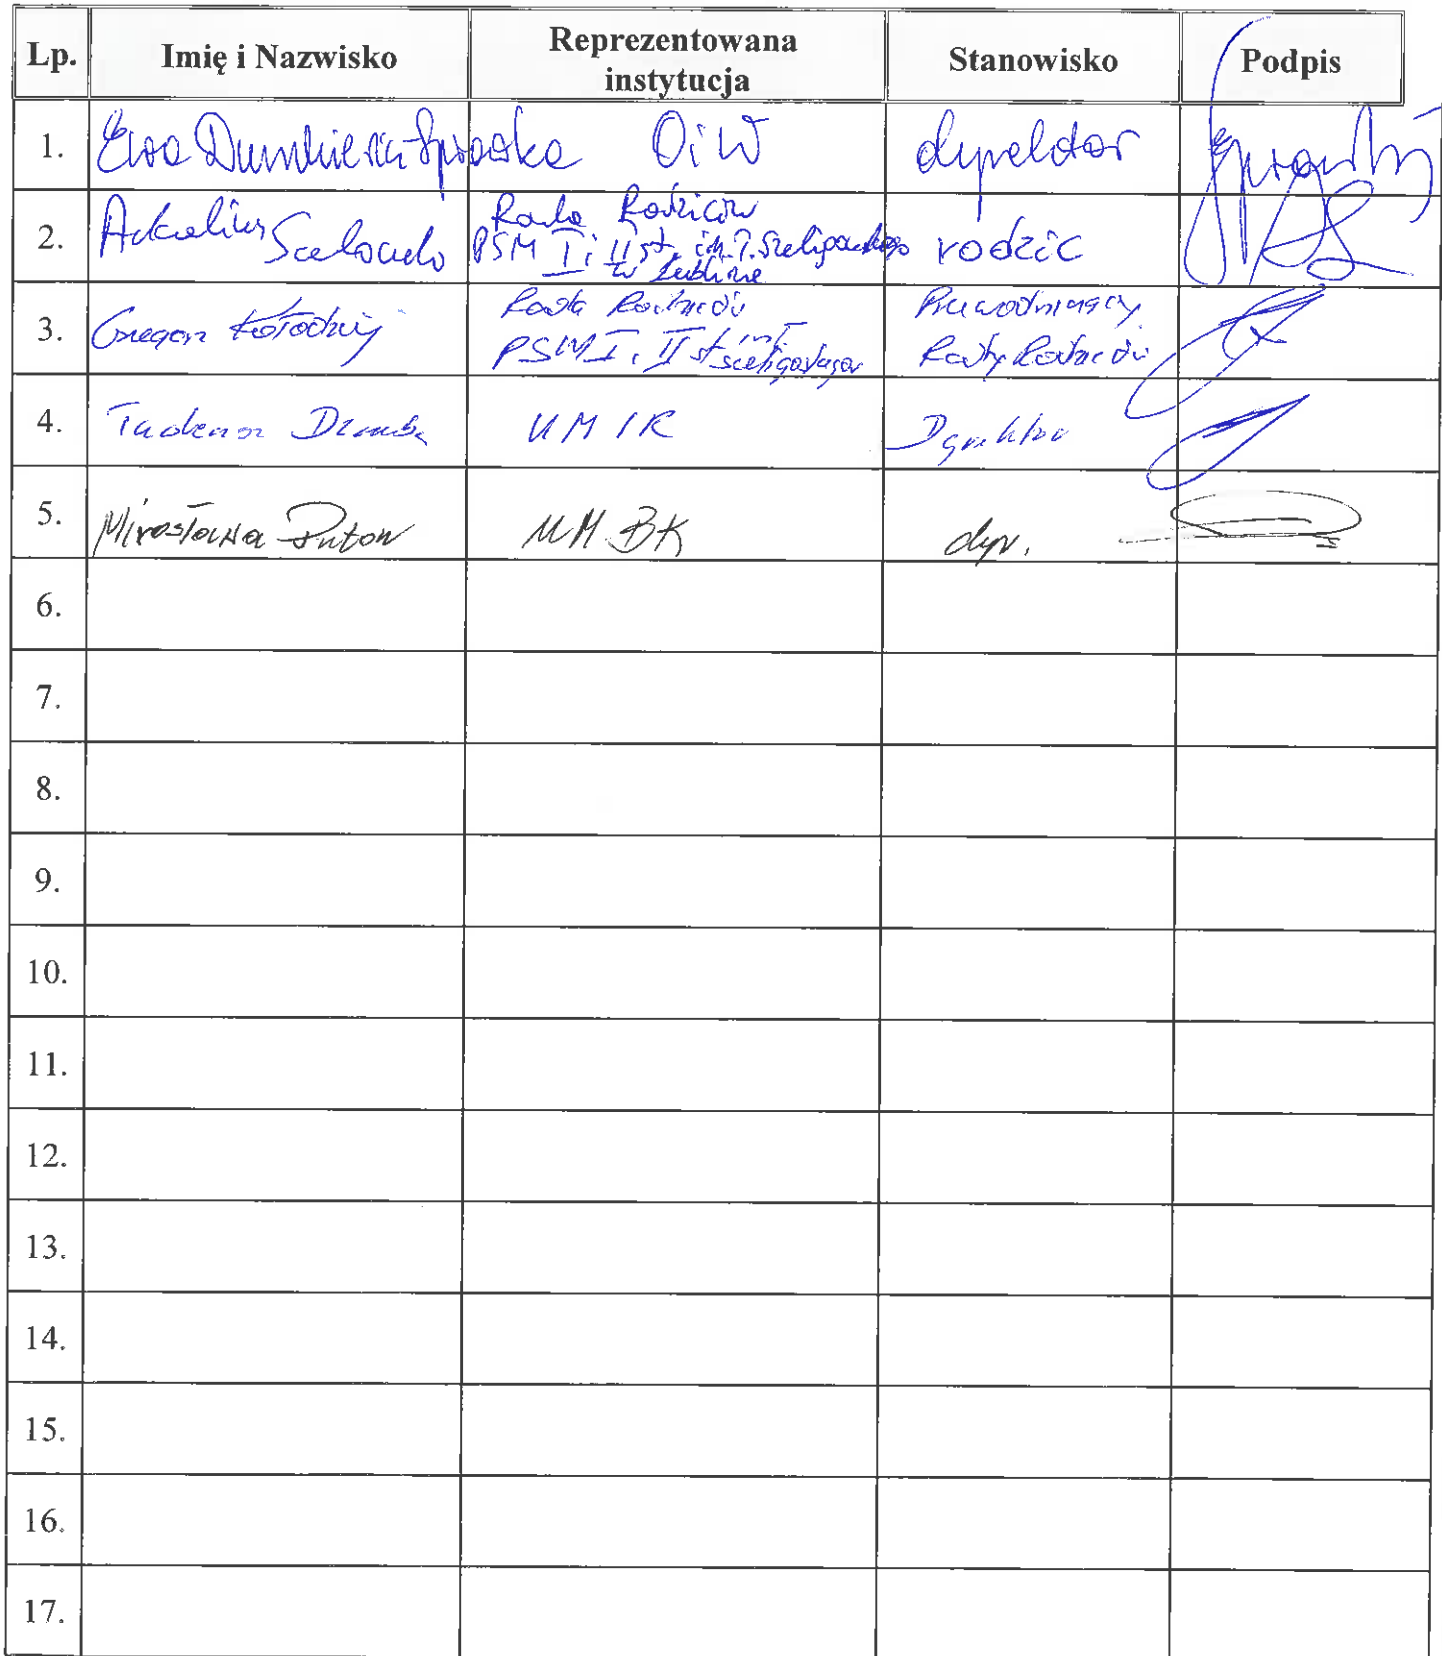 Lp. Imię i Nazwisko Reprezentowana instytucja Stanowisko Podpis
1. Ewa Dumkiewicz-Sprawka OiW dyrektor
2. Rada Rodziców PSM I i II st. im. T. Szeligowskiego w Lublinie rodzic
3. Grzegorz Kołodziej Rada Rodziców PSM I i II st im T Szeligowskiego Przewodniczący Rady Rodziców
4. Tadeusz Dziuba UM IR Dyrektor
5. Mirosława Puton UM BK dyr.
6.
7.
8.
9.
10.
11.
12.
13.
14.
15.
16.
17.